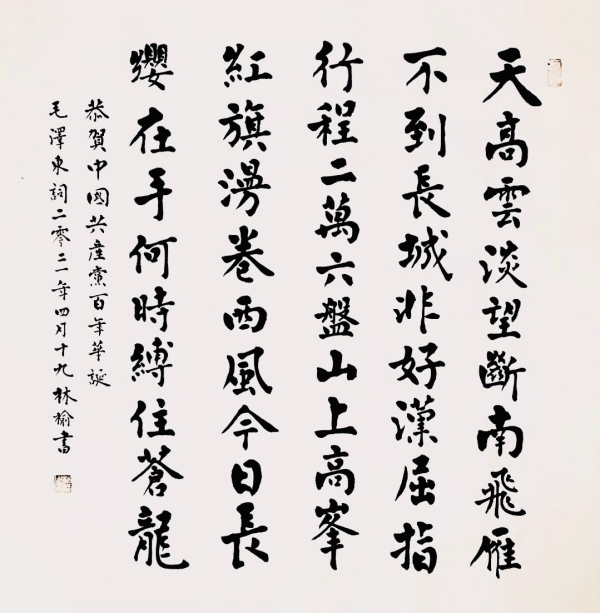 天高雲淡望斷南飛雁
不到長城非好漢屈指
行程二萬六盤山上高峯
紅旗漫卷西風今日長
纓在手何時縛住蒼龍
恭賀中國共產黨百年華誕
毛澤東詞二零二一年四月十九林榆書